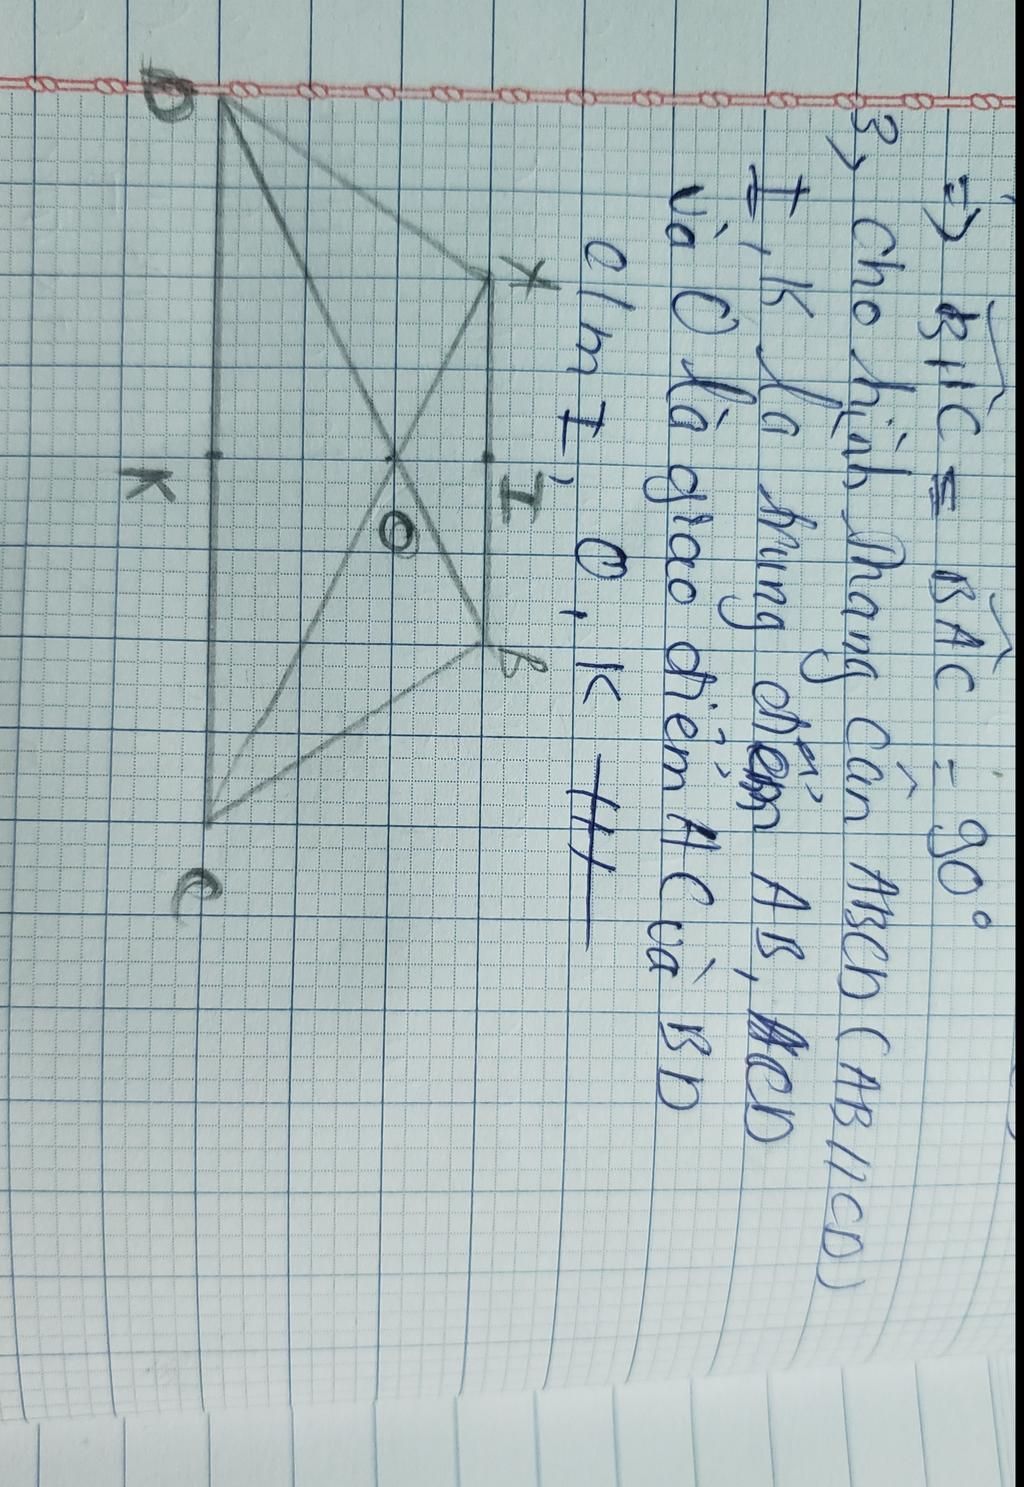 => BHC = BAC = 90°
3> Cho hình thang cân ABCD (AB//CD)
I, K là trung điểm AB, CD
và O là giao điểm AC và BD
c/m I, O, K TH
A I B
O
D K C